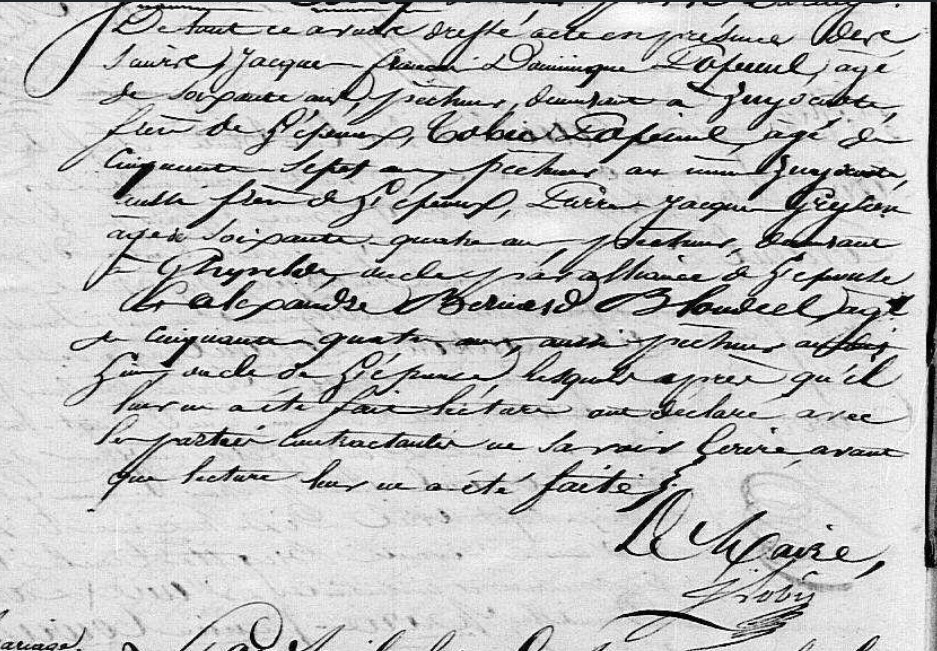 De tout ce avons dressé acte en présence de ce
Jacques françois Dominique Lapeuul, âgé
de soixante ans, pêcheur, demeurant à Zuydcoote,
frère de l'époux, Tobie Lapeuul, âgé de
cinquante sept ans, pêcheur au même Zuydcoote,
aussi frère de l'époux, Pierre Jacques
âgé de soixante quatre ans, pêcheur, demeurant
à Ghyvelde, oncle par alliance de l'épouse
et alexandre Bernard Blondeel, âgé
de cinquante quatre ans, aussi pêcheur au
oncle de l'épouse, lesquels après qu'il
leur en a été fait lecture ont déclaré avec
les parties contractantes ne savoir écrire, avant
que lecture leur en a été faite.
Le Maire,
Mariage.